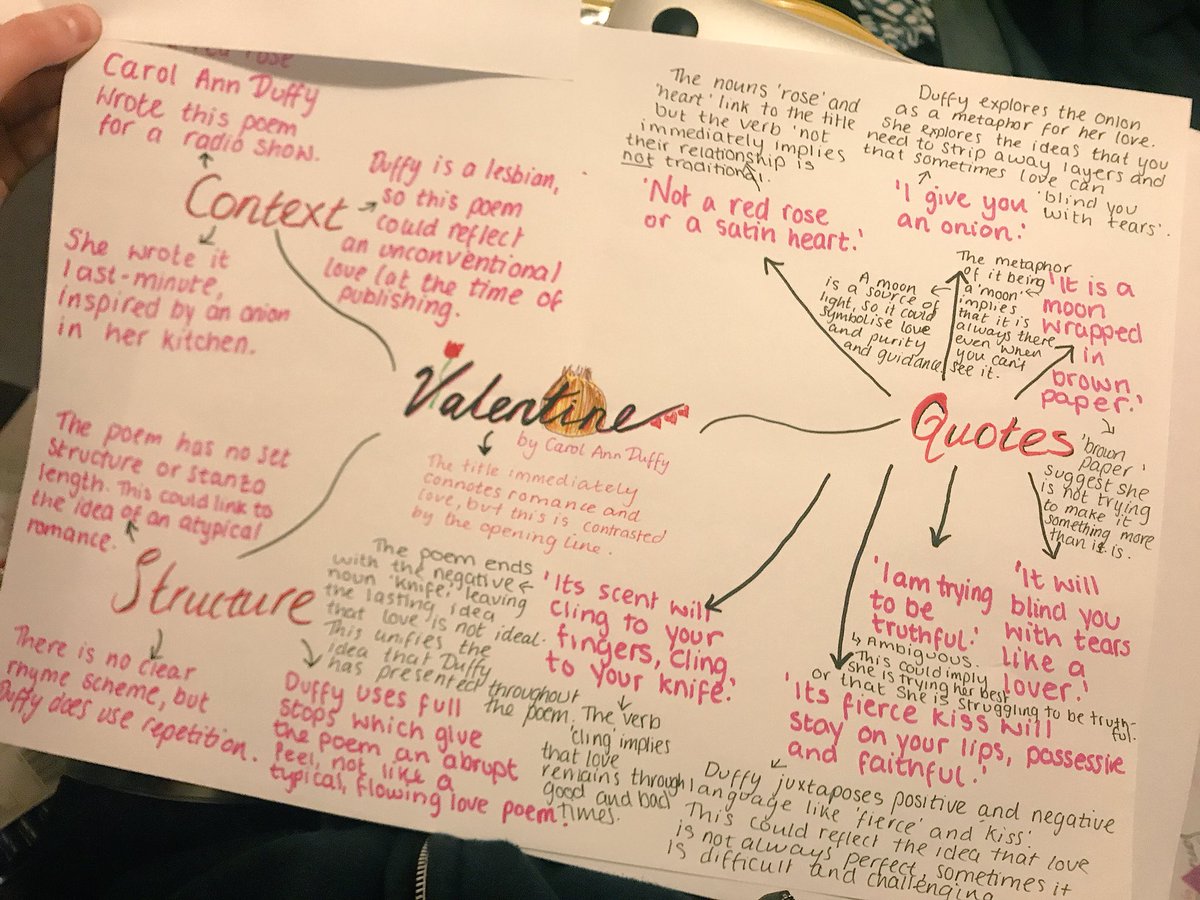 rose
Carol Ann Duffy
wrote this poem
for a radio show.
Context
Duffy is a lesbian,
so this poem
could reflect
an unconventional
love (at the time of
publishing.
She wrote it
last-minute,
inspired by an onion
in her kitchen.
Valentine
by Carol Ann Duffy
The title immediately
connotes romance and
love, but this is contrasted
by the opening line.
The poem has no set
structure or stanza
length. This could link to
the idea of an atypical
romance.
Structure
There is no clear
rhyme scheme, but
Duffy does use repetition.
Duffy uses full
stops which give
the poem an abrupt
feel, not like a
typical, flowing love poem.
Quotes
The nouns 'rose' and
'heart' link to the title
but the verb 'not
immediately implies
their relationship is
not traditional.
'Not a red rose
or a satin heart.'
Duffy explores the onion
as a metaphor for her love.
She explores the ideas that you
need to strip away layers and
that sometimes love can
'blind you
with tears'.
'I give you
an onion.'
The metaphor
of it being
a 'moon'
implies
that it is
always there
even when
you can't
see it.
A moon
is a source of
light, so it could
symbolise love
and purity
and guidance.
'It is a
moon
wrapped
in
brown
paper.'
'brown
paper'
suggest she
is not trying
to make it
something more
than it is.
'It will
blind you
with tears
like a
lover.'
'I am trying
to be
truthful.'
Ambiguous.
This could imply
she is trying her best
or that she is struggling to be truth-
ful.
'Its fierce kiss will
stay on your lips, possessive
and faithful.'
Duffy juxtaposes positive and negative
language like 'fierce' and kiss'.
This could reflect the idea that love
is not always perfect, sometimes it
is difficult and challenging
'Its scent will
cling to your
fingers, cling
to your knife.'
The poem ends
with the negative
noun 'knife', leaving
the lasting idea
that love is not ideal.
This unifies the
idea that Duffy
has presented throughout
the poem.
The verb
'cling' implies
that love
remains through
good and bad
times.